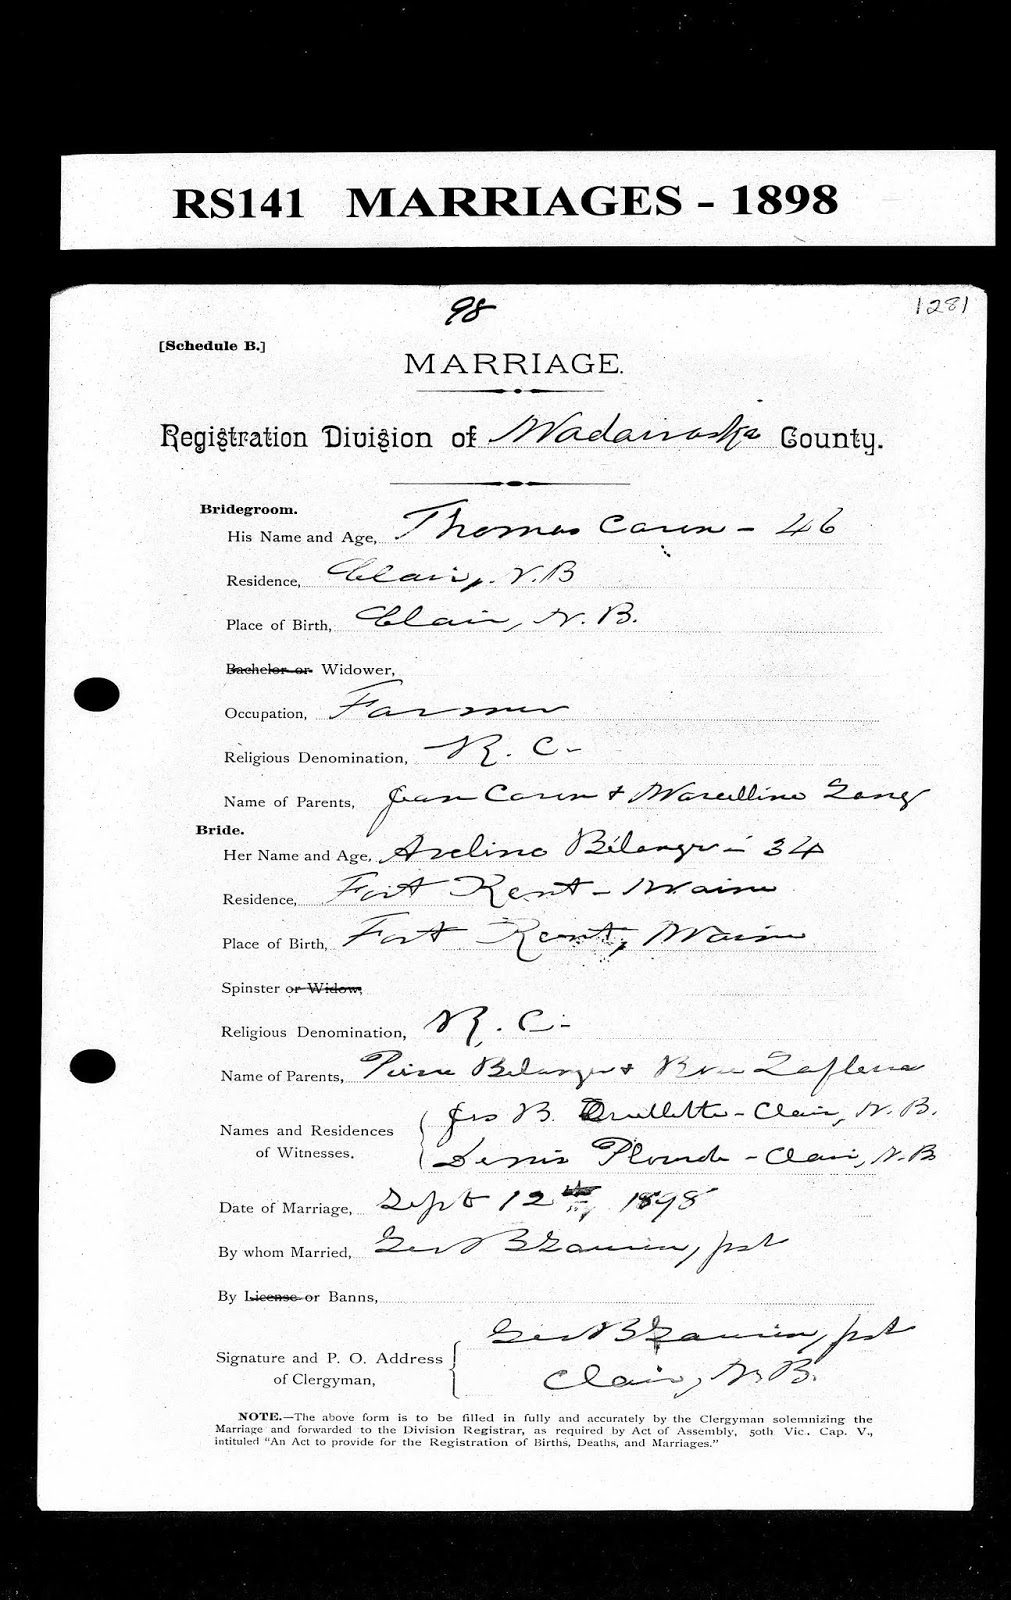 RS141 MARRIAGES - 1898
98
1281
[Schedule B.]
MARRIAGE.
Registration Division of Madawaska County.
Bridegroom.
His Name and Age, Thomas Caron - 46
Residence, Clair, N.B
Place of Birth, Clair, N.B.
Bachelor or Widower,
Occupation, Farmer
Religious Denomination, R. C-
Name of Parents, Jean Caron + Marcelline Lang
Bride.
Her Name and Age, Aveline Bélanger - 34
Residence, Fort Kent - Maine
Place of Birth, Fort Kent, Maine
Spinster or Widow,
Religious Denomination, R. C-
Name of Parents, Pierre Belanger +
Names and Residences
of Witnesses.
Jos B. Ouellette - Clair, N.B.
Denis Plourde - Clair, N.B
Date of Marriage, Sept 12th, 1898
By whom Married, Geo N B pst
By License or Banns,
Signature and P. O. Address
of Clergyman,
Geo N B pst
Clair, N.B.
NOTE.—The above form is to be filled in fully and accurately by the Clergyman solemnizing the
Marriage and forwarded to the Division Registrar, as required by Act of Assembly, 50th Vic. Cap. V.,
intituled "An Act to provide for the Registration of Births, Deaths, and Marriages."